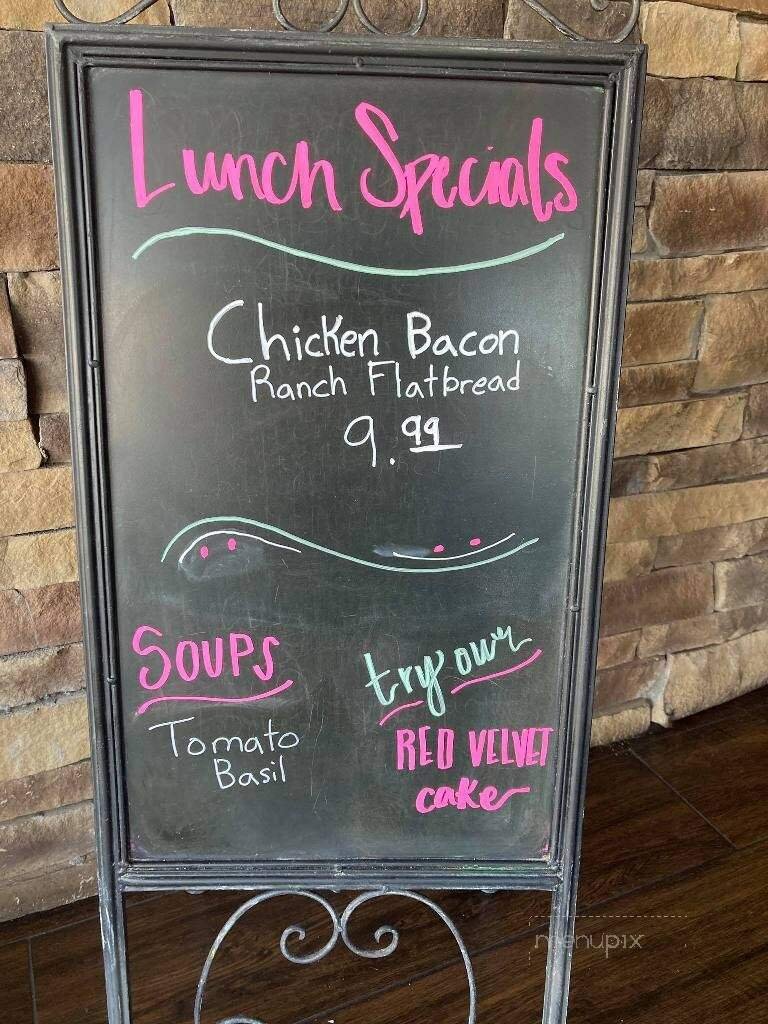 Lunch Specials
Chicken Bacon
Ranch Flatbread
9.99
SOUPS
Tomato
Basil
try our
RED VELVET
cake
menupix